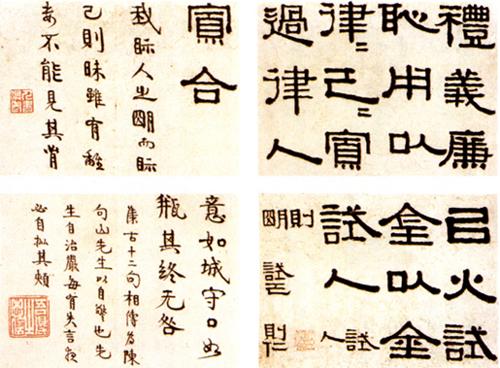 禮義廉
恥用以
律〻己〻寡
過律人
寡合
我眎人之朙而眎
己則昧雖有離
婁不能見其背
㠯火試
金以金
試人試人
則朙試己則仁
意如城守口如
瓶其終无咎
集古十二句相傳為陳
句山先生以自警也先
生自治嚴每有失言夜
必自批其頰